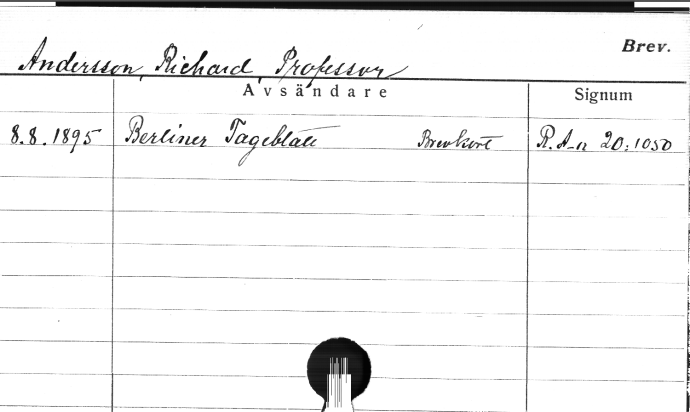 Brev.
Andersson, Richard, Professor
Avsändare Signum
8.8.1895 Berliner Tageblatt Brevkort R.A-n 20:1050